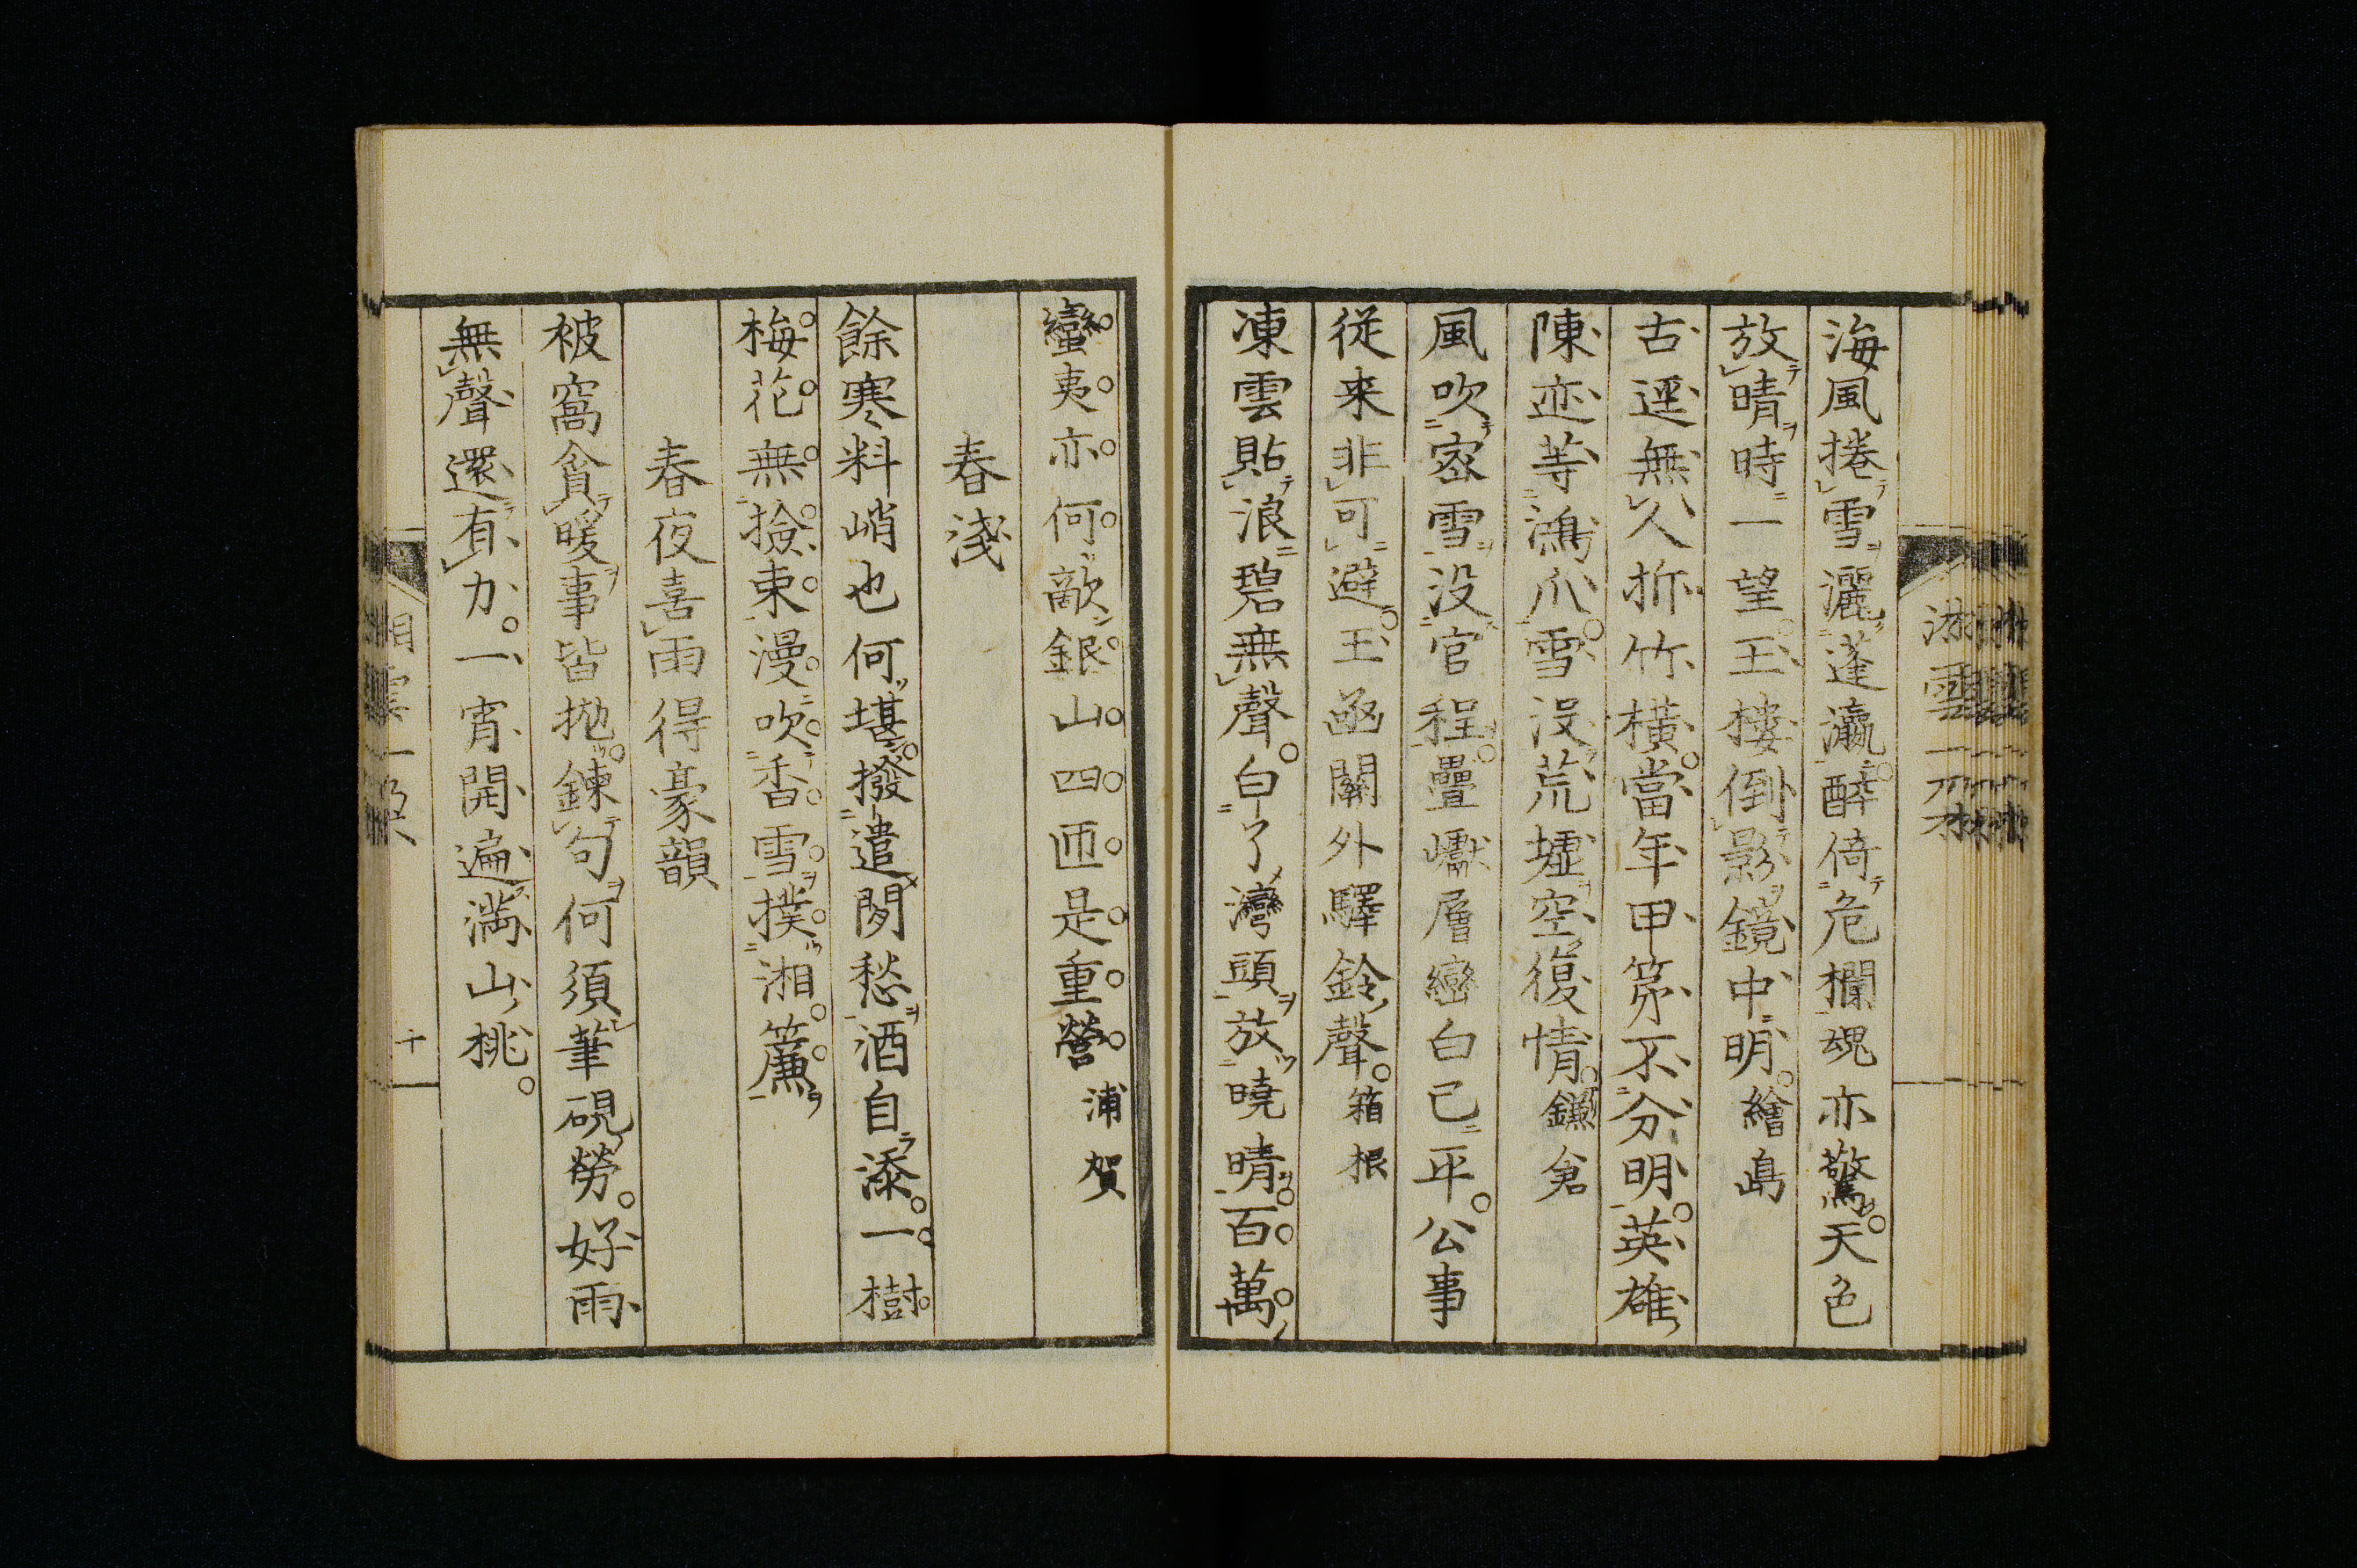 海風捲雪灑蓬瀛醉倚危欄魂亦驚天色
放晴時一望玉樓倒影鏡中明繪島
古逕無人折竹橫當年甲第不分明英雄
陳迹等鴻爪雪沒荒墟空復情鎌倉
風吹密雪没官程疊巘層巒白已平公事
從来非可避玉函關外驛鈴聲箱根
凍雲貼浪碧無聲白了灣頭放曉晴百萬
蠻夷亦何敵銀山四匝是重營浦賀
春淺
餘寒料峭也何堪撥遣閑愁酒自添一樹
梅花無撿束漫吹香雪撲湘簾
春夜喜雨得豪韻
被窩貪暖事皆抛鍊句何須筆硯勞好雨
無聲還有力一宵開遍滿山桃
十